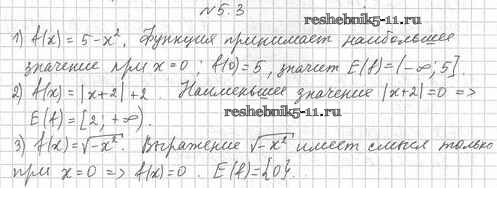 №5.3
reshebnik5-11.ru
1) f(x) = 5 - x². Функция принимает наибольшее
значение при x = 0; f(0) = 5, значит E(f) = (-∞; 5].
2) f(x) = |x+2| + 2. Наименьшее значение |x+2| = 0 =>
E(f) = [2; +∞).
reshebnik5-11.ru
3) f(x) = √-x². Выражение √-x² имеет смысл только
при x = 0 => f(x) = 0. E(f) = {0}.